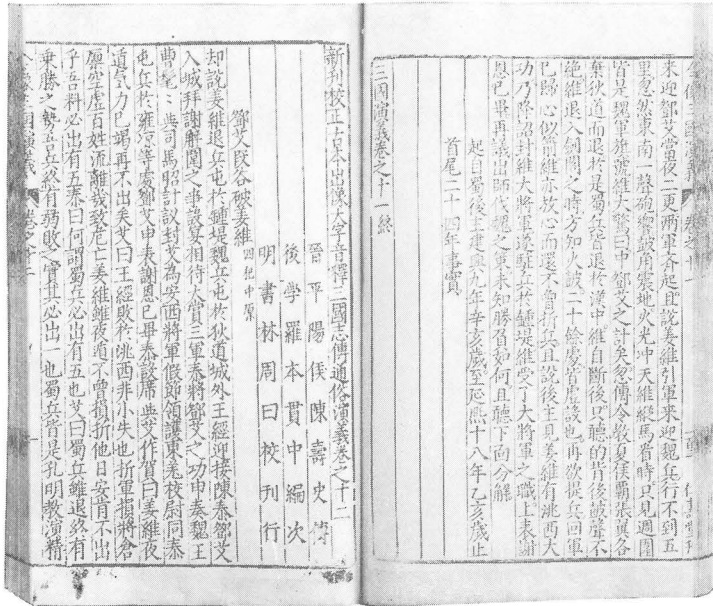 來迎鄧艾當夜二更兩軍齊起且說姜維引軍來迎魏兵行不到五
里忽然東南一聲砲響鼓角震地火光冲天維縱馬看時只見週圍
皆是魏軍旗號維大驚曰中鄧艾之計矣忽傳令教夏侯霸張翼各
棄狄道而退於是蜀兵皆退於漢中維自斷後只聽的背後鼓聲不
絕維退入劍閣之時方知火鼓二十餘處皆虛設也再欲提兵回軍
已歸心似箭維亦放心而還不曾折兵且說後主見姜維有洮西大
功乃降詔封維大將軍遂駐兵於鍾堤維受了大將軍之職上表謝
恩已畢再議出師伐魏之軍未知勝負如何且聽下面分解
起自蜀後主建興九年辛亥歲至延熙十八年乙亥歲止
首尾二十四年事實
三國演義卷之十一終
新刊校正古本出像大字音釋三國志傳通俗演義卷之十二
晉平陽侯陳壽史傳
後學羅本貫中編次
明書林周曰校刊行
鄧艾段谷破姜維
四犯中原
却說姜維退兵屯於鍾堤魏兵屯於狄道城外王經迎接陳泰鄧艾
入城拜謝解圍之事設宴相待大賞三軍泰將鄧艾之功申奏魏王
曹髦髦與司馬昭計議封艾為安西將軍假節領護東羌校尉同泰
屯兵於雍涼等處鄧艾申表謝恩已畢泰設席與艾作賀曰姜維夜
遁氣力已竭再不出矣艾曰王經敗於洮西非小失也折軍損將倉
廩空虛百姓流離幾致危亡姜維雖夜遁不曾損折他日安肯不出
乎吾料必出有五泰曰何謂蜀兵必出有五也艾曰蜀兵雖退終有
乗勝之勢吾兵終有弱敗之實其必出一也蜀兵皆是孔明教演精